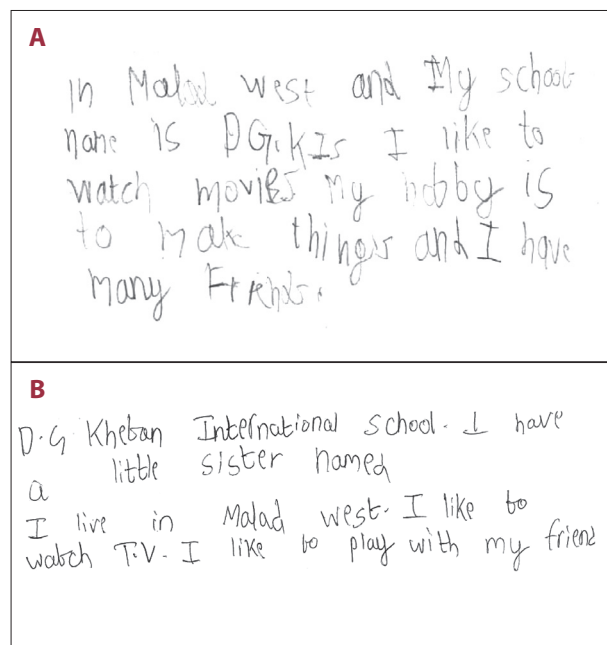 A
In Malad west and My school
name is DG.KIs I like to
watch movies My hobby is
to make things and I have
many Friends.
B
D.G Kheban International school. I have
a little sister named
I live in Malad west. I like to
watch T.V. I like to play with my friend